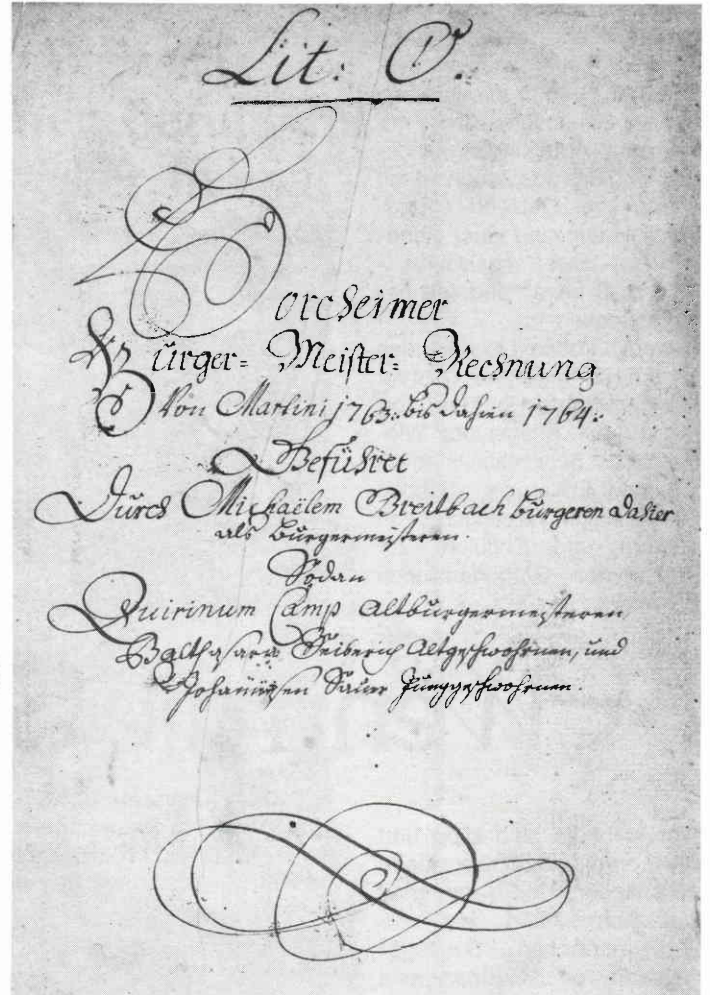 Lit: O.
Horcheimer
Bürger= Meister= Rechnung
Von Martini 1763: bis dahien 1764:
Geführet
Durch Michaëlem Breitbach burgeren dahier
als burgermeisteren.
Sodan
Quirinum Camp altburgermeisteren
Balthasarn Seiberich Altgeschwohrnen, und
Johannesen Sauer Junggeschwohrnen.